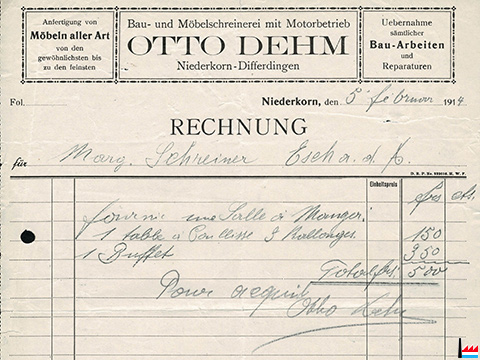 Anfertigung von
Möbeln aller Art
von den
gewöhnlichsten bis
zu den feinsten
Bau- und Möbelschreinerei mit Motorbetrieb
OTTO DEHM
Niederkorn-Differdingen
Uebernahme
sämtlicher
Bau-Arbeiten
und
Reparaturen
Fol.
Niederkorn, den 5 februar 1914
RECHNUNG
für Marg. Schreiner Esch a. d. A.
Einheitspreis
frs cts.
fournie une Salle à Manger.
1 table à Coulisse 3 Rallonges. 150
1 Buffet 350
Total frs. 500
Pour acquit
Otto Dehm